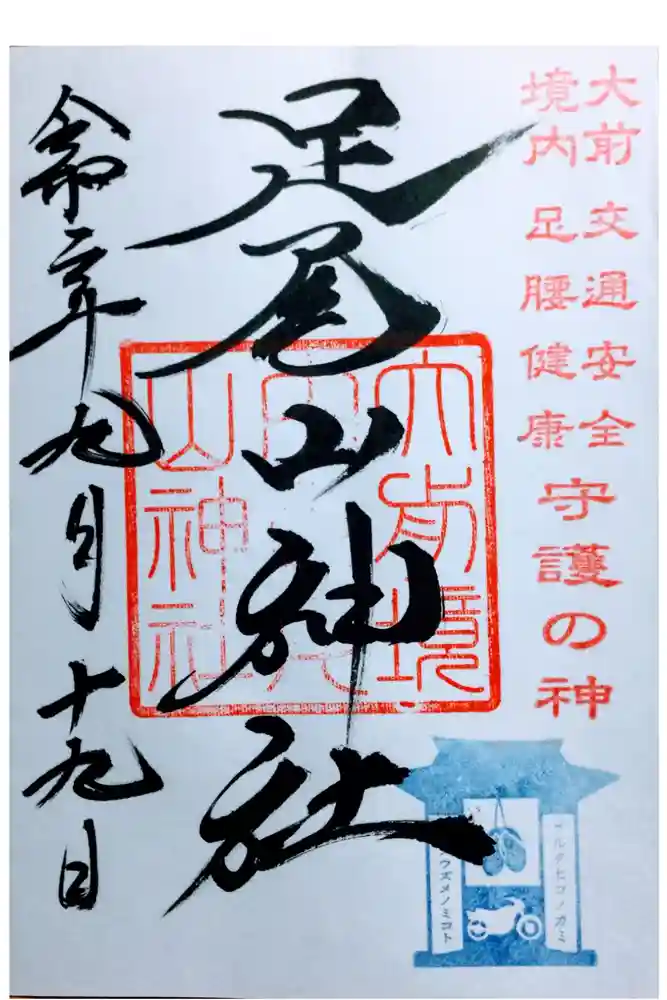 大前 交通安全
境内 足腰健康
守護の神
足尾山神社
令和二年九月十九日
大前境
内足尾
山神社
サルタヒコノカミ
アメノウズメノミコト